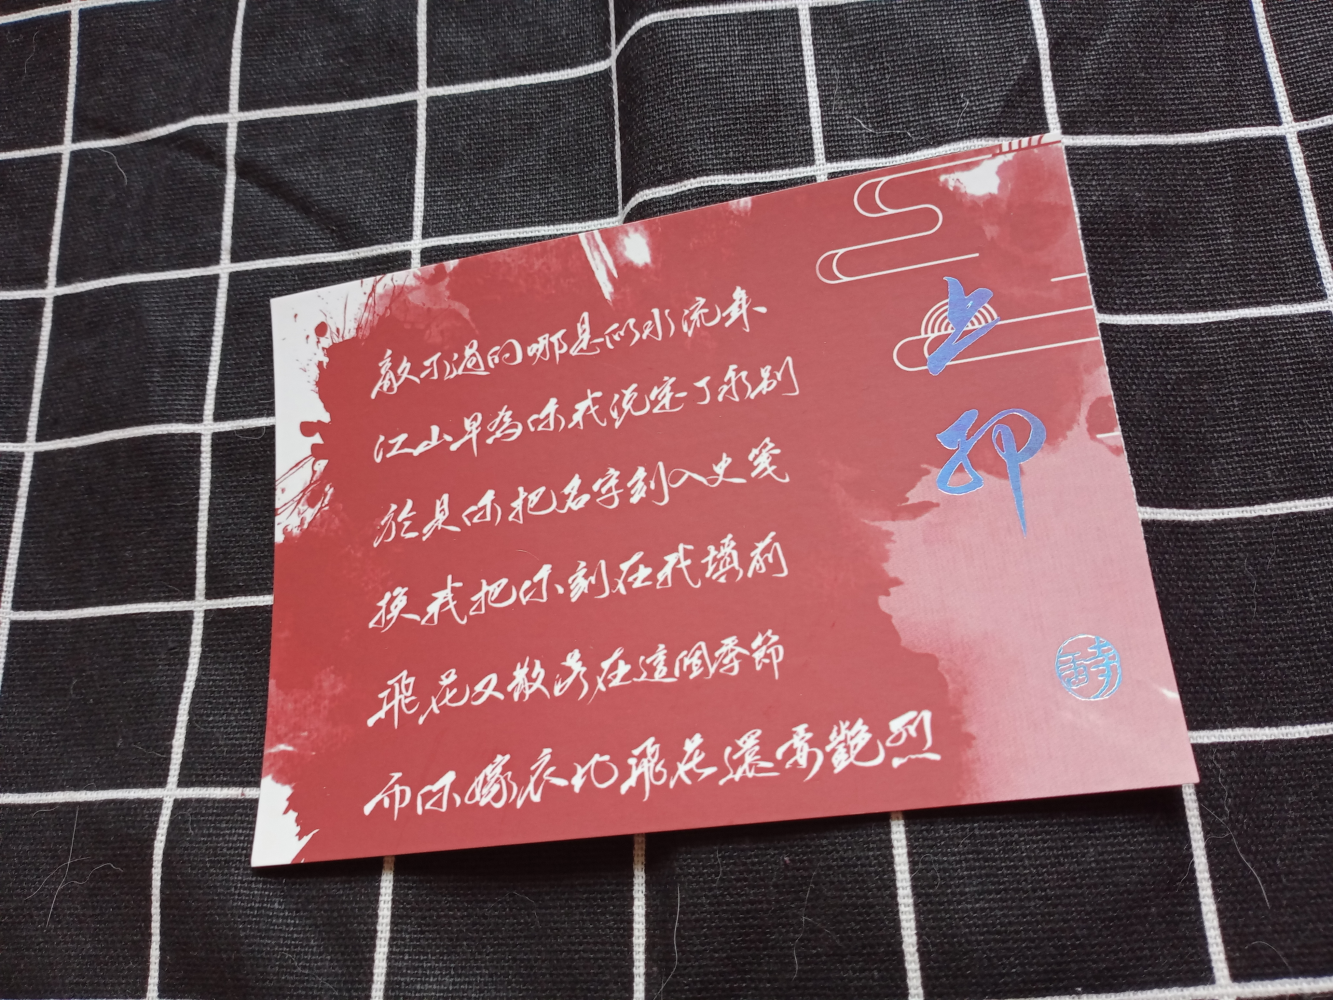 上邪
敵不過的哪是似水流年
江山早為你我說定了永別
於是你把名字刻入史箋
換我把你刻在我墳前
飛花又散落在這個季節
而你嫁衣比飛花還要艷烈
詩